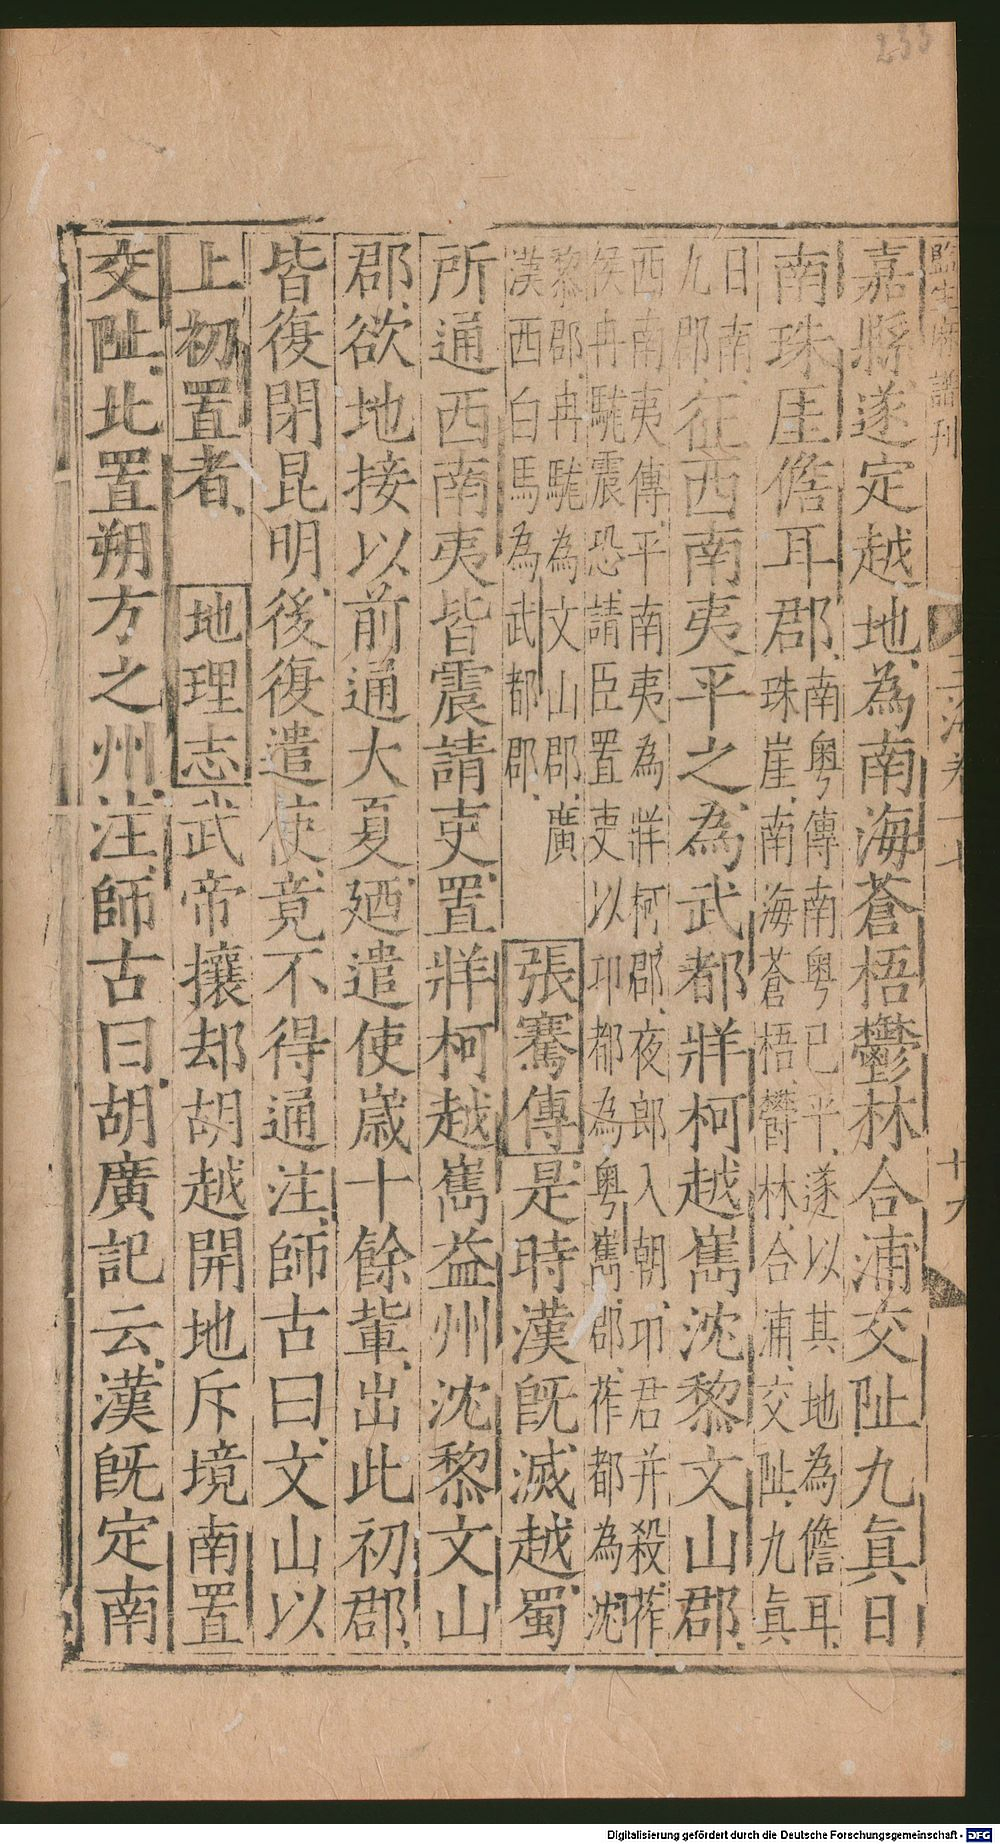 嘉縣遂定越地為南海蒼梧鬱林合浦交阯九眞日
南珠厓儋耳郡南粤傳南粤已平遂以其地為儋耳
珠崖南海蒼梧鬱林合浦交阯九眞
日南
九郡征西南夷平之為武都牂柯越嶲沈黎文山郡
西南夷傳平南夷為牂柯郡夜郎入朝卭君并殺莋
侯冉駹震恐請臣置吏以卭都為粤嶲郡莋都為沈
黎郡冉駹為文山郡廣
漢西白馬為武都郡
張騫傳是時漢旣滅越蜀
所通西南夷皆震請吏置牂柯越嶲益州沈黎文山
郡欲地接以前通大夏廼遣使歲十餘輩出此初郡
皆復閉昆明後復遣使竟不得通注師古曰文山以
上初置者 地理志武帝攘却胡越開地斥境南置
交阯北置朔方之州注師古曰胡廣記云漢旣定南
十六
233
Digitalisierung gefördert durch die Deutsche Forschungsgemeinschaft - DFG